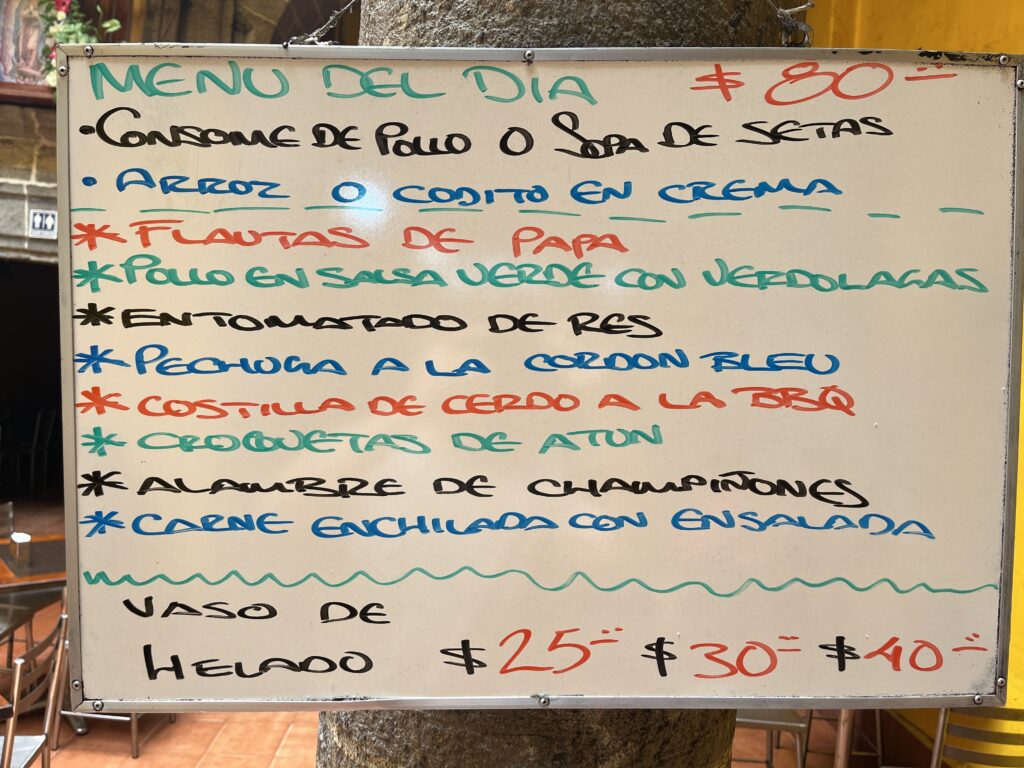 MENU DEL DIA $80=
•CONSOME DE POLLO O SOPA DE SETAS
• ARROZ O CODITO EN CREMA
* FLAUTAS DE PAPA
* POLLO EN SALSA VERDE CON VERDOLAGAS
* ENTOMATADO DE RES
* PECHUGA A LA CORDON BLEU
* COSTILLA DE CERDO A LA BBQ
* CROQUETAS DE ATUN
* ALAMBRE DE CHAMPIÑONES
* CARNE ENCHILADA CON ENSALADA
VASO DE
HELADO $25= $30= $40=